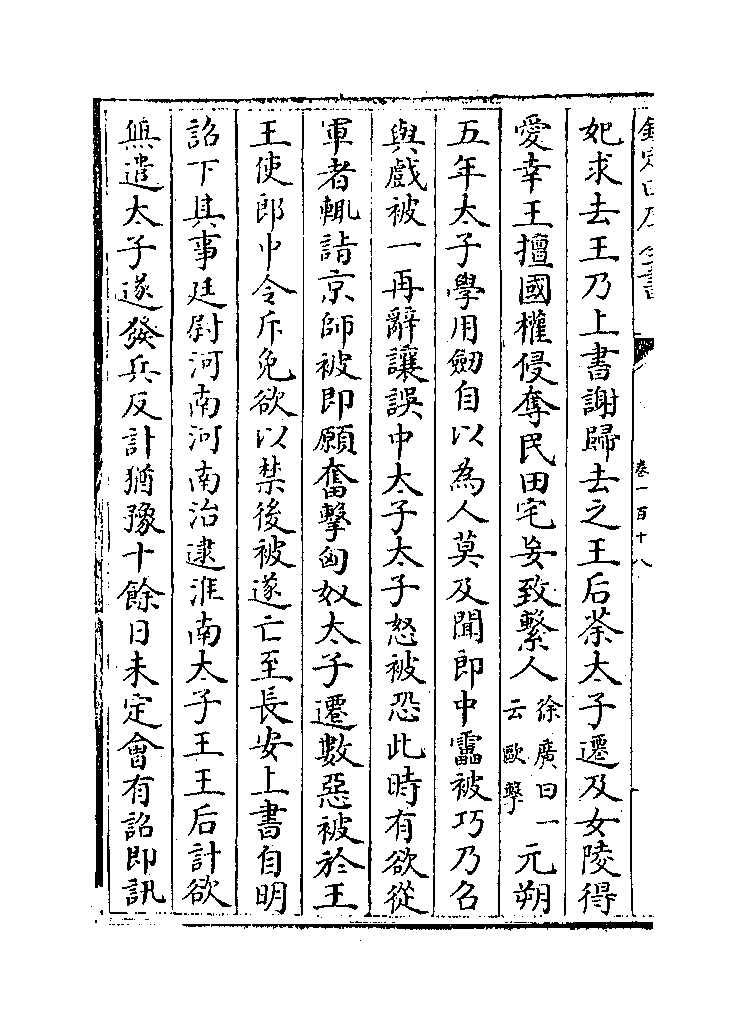 欽定四庫全書
卷一百十八
妃求去王乃上書謝歸去之王后荼太子遷及女陵得
愛幸王擅國權侵奪民田宅妄致繫人徐廣曰一云歐擊元朔
五年太子學用劒自以為人莫及聞郎中靁被巧乃召
與戲被一再辭讓誤中太子太子怒被恐此時有欲從
軍者輒詣京師被即願奮擊匈奴太子遷數惡被於王
王使郎中令斥免欲以禁後被遂亡至長安上書自明
詔下其事廷尉河南河南治逮淮南太子王王后計欲
無遣太子遂發兵反計猶豫十餘日未定會有詔即訊